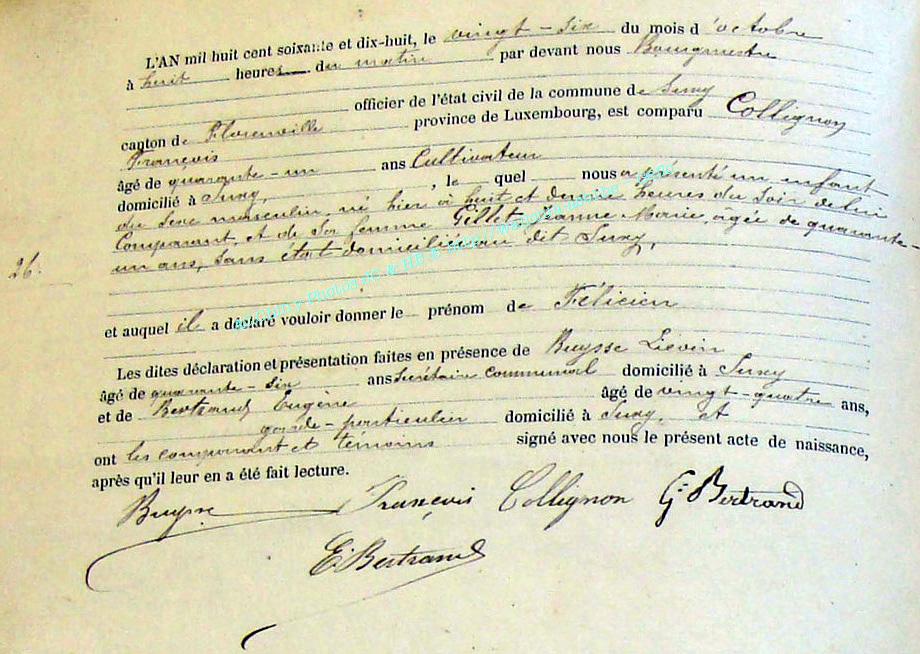 L'AN mil huit cent soixante et dix-huit, le vingt-six du mois d'octobre
à huit heures du matin par devant nous Bourgmestre
officier de l'état civil de la commune de Suxy
canton de Florenville province de Luxembourg, est comparu Collignon
François
âgé de quarante-un ans Cultivateur
domicilié à Suxy, , le quel nous a présenté un enfant
du sexe masculin, né hier à huit et demie heures du soir de lui
Comparant, et de sa femme Gillet Jeanne Marie, agée de quarante-
un ans, sans état domiciliée au dit Suxy,
26.
et auquel il a déclaré vouloir donner le prénom de Félicien
Les dites déclaration et présentation faites en présence de Buysse Liévin
âgé de quarante-six ans Secrétaire communal domicilié à Suxy
et de Bertrand Eugène âgé de vingt-quatre ans,
garde-particulier domicilié à Suxy, et
ont les comparant et témoins signé avec nous le présent acte de naissance,
après qu'il leur en a été fait lecture.
Buysse François Collignon G. Bertrand
E. Bertrand